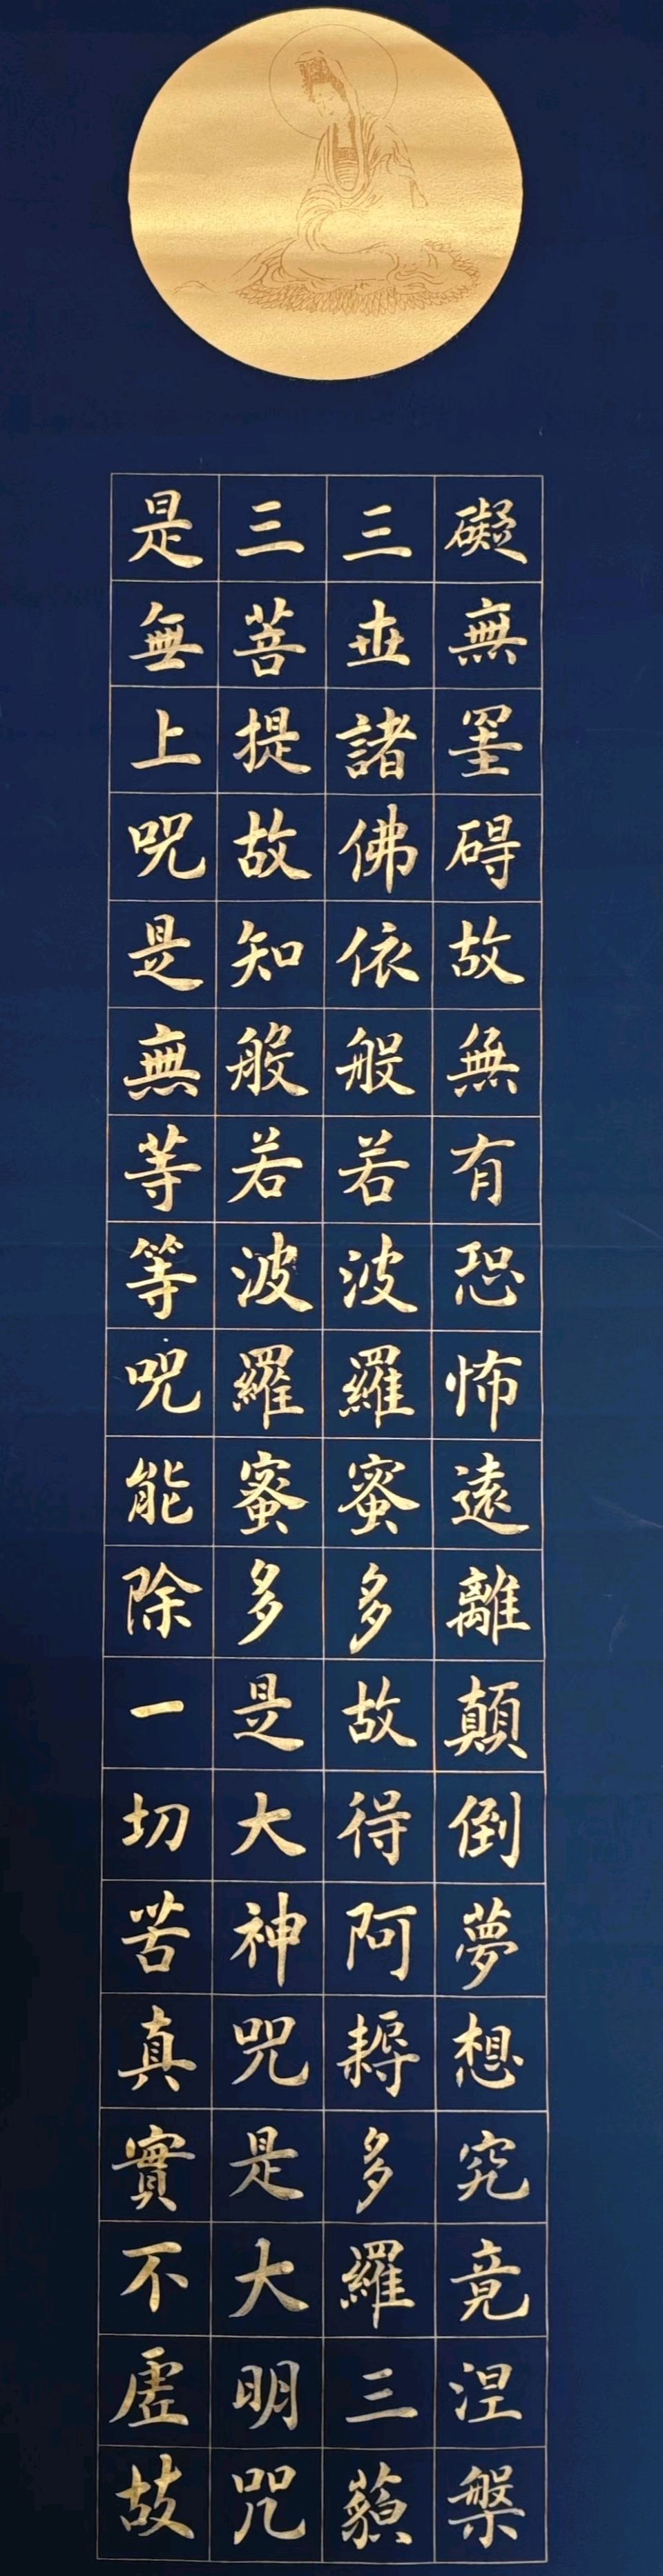 礙無罣碍故無有恐怖遠離顛倒夢想究竟涅槃
三世諸佛依般若波羅蜜多故得阿耨多羅三藐
三菩提故知般若波羅蜜多是大神咒是大明咒
是無上咒是無等等咒能除一切苦真實不虛故